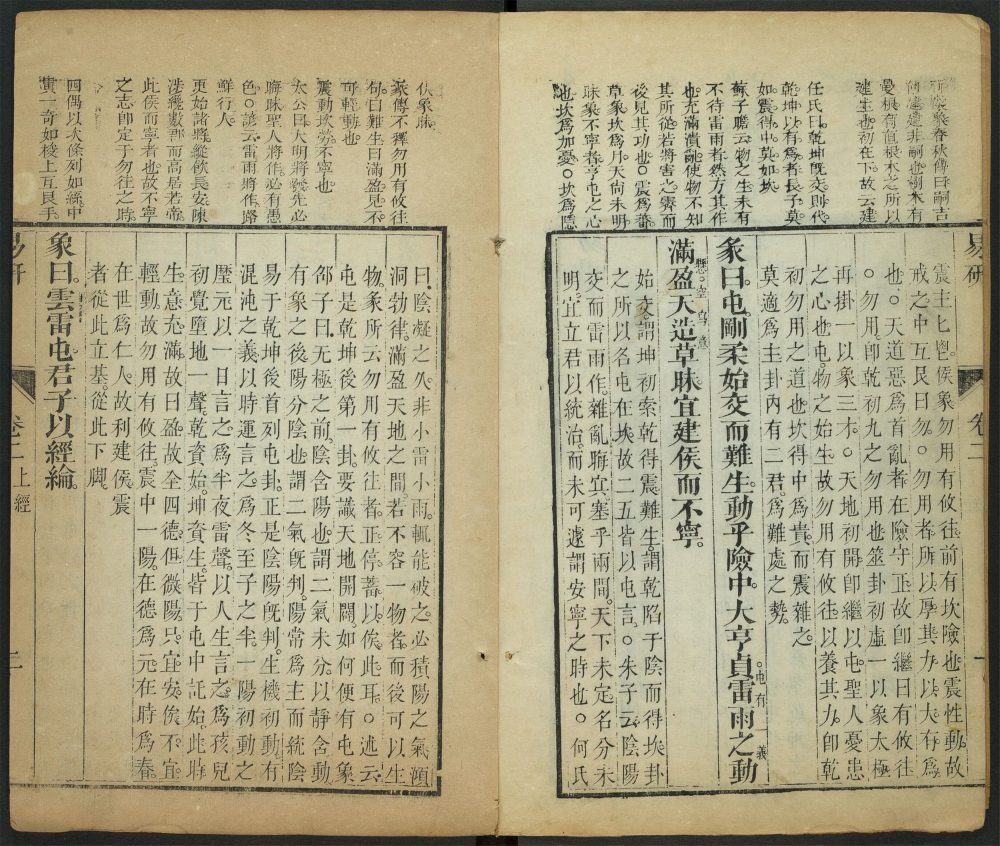 易研
卷二
一
震主匕鬯。侯象。勿用有攸徃。前有坎險也。震性動。故
戒之中互艮曰勿。○勿用者。所以厚其力。以大有爲
也。○天道惡爲首。亂者在險守正。故卽繼曰有攸往
○勿用。卽乾初九之勿用也。筮卦初虛一以象太極
再掛一以象三才。○天地初開。卽繼以屯。聖人憂患
之心也。屯。物之始生。故勿用有攸徃。以養其力。卽乾
初勿用之道也。坎得中爲貴。而震雜之。
莫適爲主。卦內有二君。爲難處之勢。
彖曰。屯。剛柔始交而難生。動乎險中。大亨貞。雷雨之動
屯有一義
滿盈。天造草昧。宜建侯而不寧。
懸空寫意
始交。謂坤初索乾得震。難生。謂乾陷于陰而得坎。卦
之所以名屯在坎。故二五皆以屯言。○朱子云。陰陽
交而雷雨作。雜亂晦冥。塞乎兩間。天下未定。名分未
明。宜立君以統治。而未可遽謂安寧之時也。○何氏
任氏曰。乾坤旣交。則代
乾坤以有爲者長子。莫
如震。得中。莫如坎。
蘇子瞻云。物之生。未有
不待雷雨者。然方其作
也。充滿潰亂。使物不知
其所從。若將害之。霽而
後見其功也。○震爲蕃
草象。坎爲月。天尚未明
昧象。不寧者。亨屯之心
也。坎爲加憂。○坎爲隱
伏象。
彖傳不釋勿用有攸往
句。曰難生。曰滿盈。見不
可輕動也。
震動坎勞。不寧也。
太公曰。大明將發。先必
晦昧。聖人將作。必有愚
色。○諺云。雷雨將作。路
鮮行人。
更始諸將縱欲長安。陳
涉纔數郡而高居若帝
此侯而寧者也。故不寧
之志。卽定于勿往之時
四偶以次條列如絲。中
貫一奇如梭。上互艮手。
曰。陰凝之久。非小雷小雨。輒能破之。必積陽之氣。澒
洞勃律。滿盈天地之間。若不容一物者。而後可以生
物。彖所云勿用有攸往者。正停蓄以俟此耳。○述云
屯是乾坤後第一卦。要識天地開闢。如何便有屯象
邵子曰。无極之前。陰含陽也。謂二氣未分。以靜含動
有象之後。陽分陰也。謂二氣旣判。陽常爲主而統陰
易于乾坤後首列屯卦。正是陰陽旣判。生機初動。有
混沌之義。以時運言之。爲冬至子之半。一陽初動之
歷元。以一日言之。爲半夜雷聲。以人生言之。爲孩兒
初覺墮地一聲。乾資始。坤資生。皆于屯中託始。此時
生意充滿。故曰盈。故全四德。但微陽只宜安俟。不宜
輕動。故勿用有攸往。震中一陽。在德爲元。在時爲春
在世爲仁人。故利建侯。震
者從此立基。從此下脚。
象曰。雲雷屯。君子以經綸。
易研
卷二上經
二